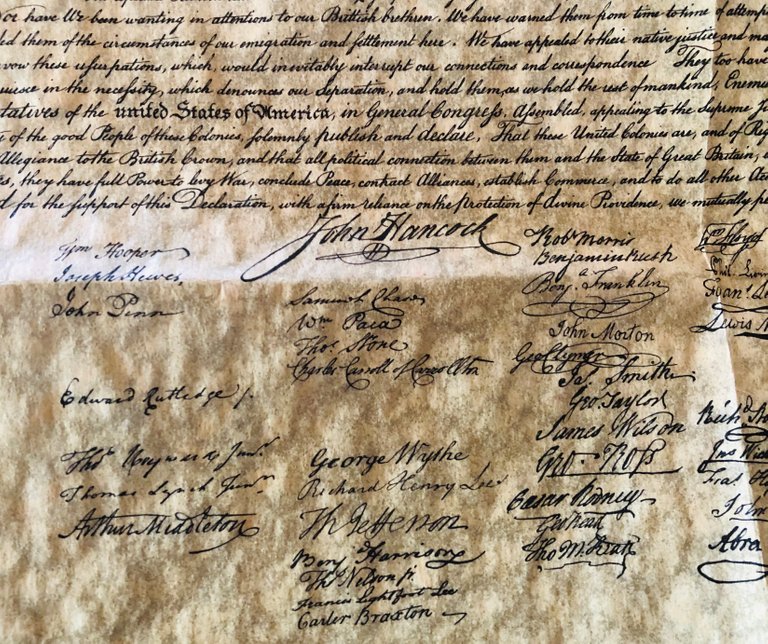 have We been wanting in attentions to our Brittish brethren. We have warned them from time to time of attemp
ed them of the circumstances of our emigration and settlement here. We have appealed to their native justice and ma
vow these usurpations, which, would inevitably interrupt our connections and correspondence They too have
uiesce in the necessity, which denounces our Separation, and hold them, as we hold the rest of mankind, Enem
tatives of the united States of America, in General Congress, Assembled, appealing to the Supreme Ju
of the good People of these Colonies, solemnly publish and declare, That these United Colonies are, and of Rig
Allegiance to the British Crown, and that all political connection between them and the State of Great Britain,
s, they have full Power to levy War, conclude Peace, contract Alliances, establish Commerce, and to do all other Ac
d for the support of this Declaration, with a firm reliance on the Protection of divine Providence, we mutually pe
John Hancock
Wm Hooper
Joseph Hewes,
John Penn
Edward Rutledge /.
Thos Heyward Junr.
Thomas Lynch Junr.
Arthur Middleton
Samuel Chase
Wm Paca
Thos Stone
Charles Carroll of Carrollton
George Wythe
Richard Henry Lee
Th Jefferson
Benja Harrison
Thos Nelson jr.
Francis Lightfoot Lee
Carter Braxton
Robt Morris
Benjamin Rush
Benja Franklin
John Morton
Geo Clymer
Jas Smith
Geo. Taylor
James Wilson
Geo. Ross
Caesar Rodney
Geo Read
Tho M:Kean
Wm Floyd
Frans Le
Lewis M
Richd
Jos
John
Abra